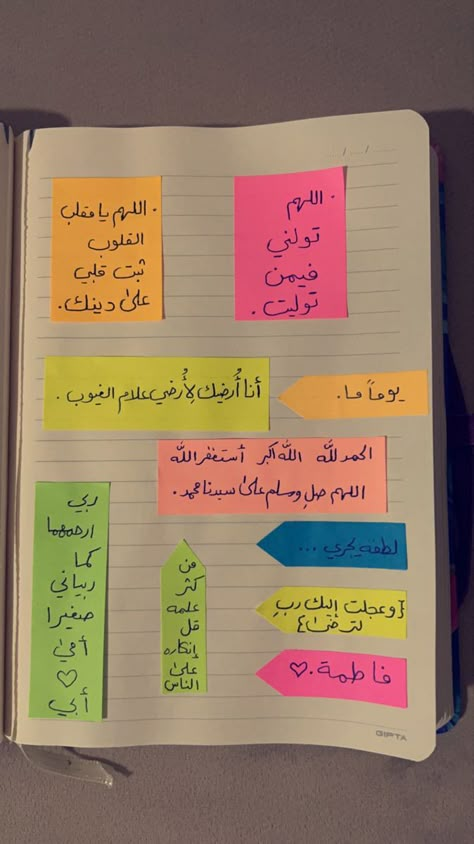 / /
. اللهم
تولني
فيمن
توليت .
. اللهم يا مقلب
القلوب
ثبت قلبي
على دينك.
يوماً ما.
أنا أُرضيك لِأُرضي علام الغيوب .
الحمدلله الله اكبر أستغفر الله
اللهم صلِ وسلم على سيدنا محمد.
لطفه يجري ...
{وعجلت إليك ربِ
لترضى}
فاطمة.♡
من
كثر
علمه
قل
إنكاره
على
الناس
ربي
ارحمهما
كما
ربياني
صغيرا
أمي
♡
أبي
GIPTA